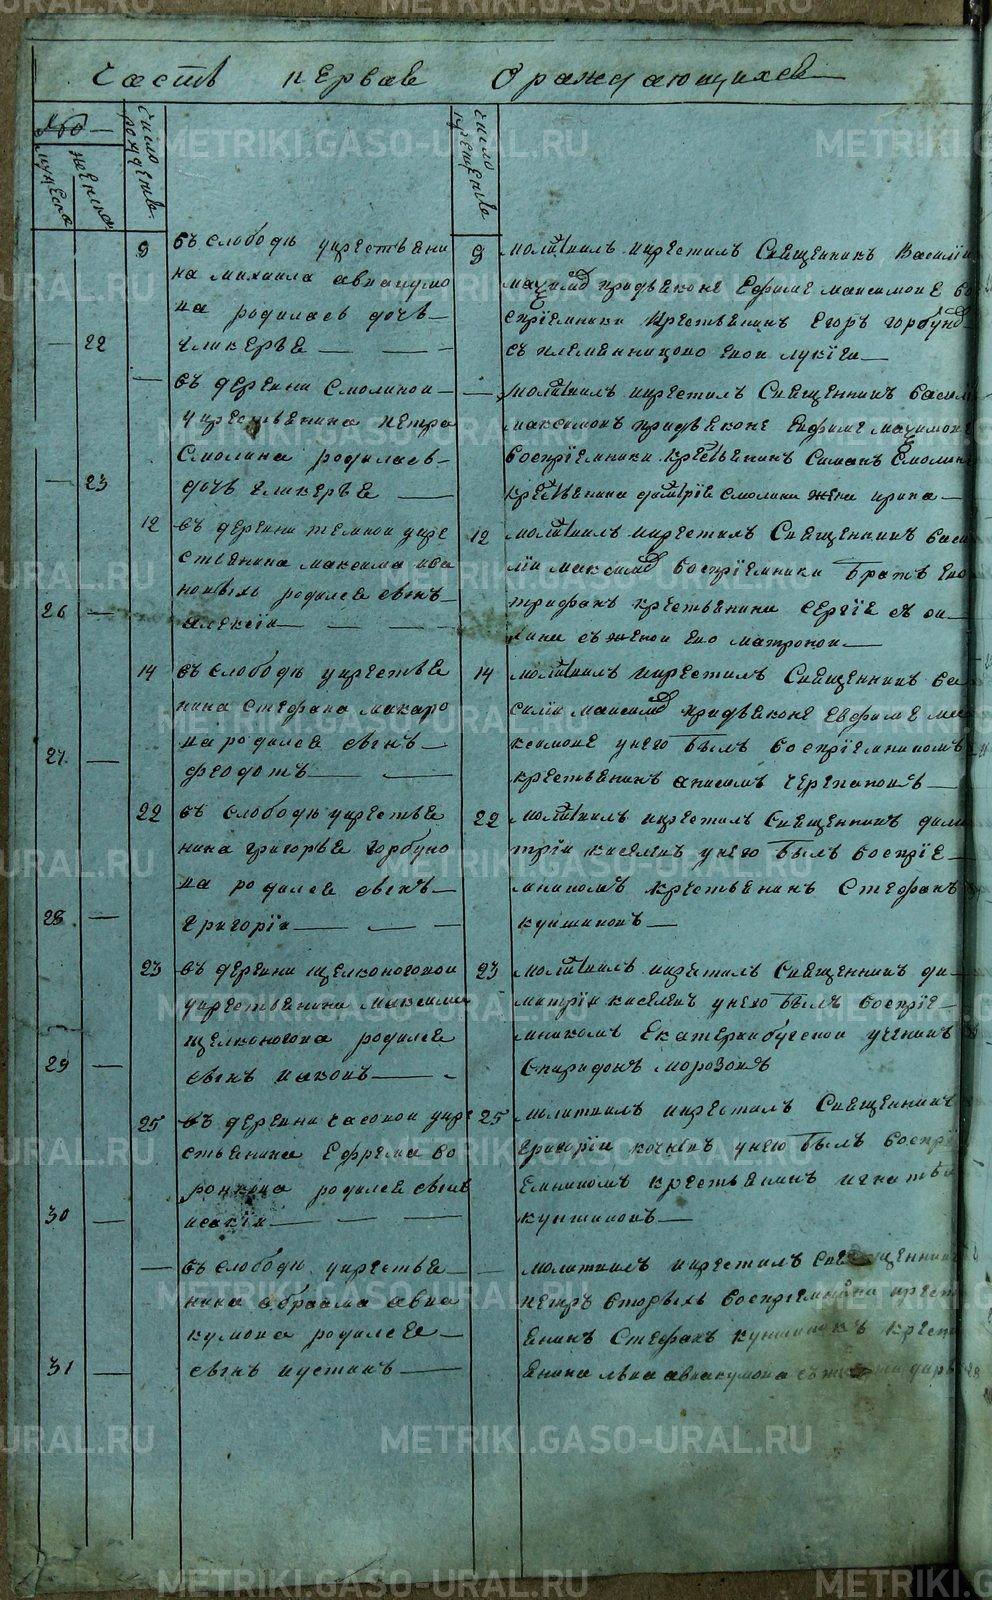 часть первае о раждающихся
№
мужеска
женска
число рождения
число крещения
9 въ слободѣ укрестьяни
на михаила авакумо
ва родилась дочь
22 гликерье
9 молитвилъ икрестилъ Священникъ Василіи
придьяконе Ефиме максимове во
спріемники крестьянинъ Егоръ горбунов
съ племянницою евои лукіеи
въ деревни Смолинои
укрестьянина петра
Смолина родилась
23 дочь гликерье
молитвилъ икрестилъ Священникъ васили
максимовъ придьяконе Ефиме
воспріемники крестьянинъ Симанъ Смолинъ
крестьянина димитріе смолина жена ирина
12 въ деревни темнои укре
стьянина максима ива
новыхъ родился сынъ
26 алексіи
12 молитвилъ икрестилъ Священникъ васи
ліи максимов воспріемники братъ ево
трифанъ крестьянина сергіе
съ женои ево матронои
14 въ слободѣ укрестье
нина стефана макаро
ва родился сынъ
27 феодотъ
14 молитвилъ икрестилъ Священникъ ва
силіи максимов придьяконе Евфиме ма
ксимове унего былъ воспріемникомъ
крестьянинъ анисимъ черепановъ
22 въ слободѣ укрестье
нина григорье горбуно
ва родился сынъ
28 григоріи
22 молитвилъ икрестилъ Священникъ дими
тріи киселевъ унего былъ воспріе
мникомъ крестьянинъ Стефанъ
кункиновъ
23 въ деревни щелконоговои
укрестьянина максима
щелконогова родился
29 сынъ иаковъ
23 молитвилъ икрестилъ Священникъ ди
митріи киселевъ унего былъ воспріе
мникомъ Екатеринбугскои ученикъ
Спиридонъ морозовъ
25 въ деревни часовои укре
стьянина Ефрема во
ронкова родился сынъ
30 исакіи
25 молитвилъ икрестилъ Священникъ
григоріи кочневъ унего былъ воспрі
емникомъ крестьянинъ игнатеи
кункиновъ
въ слободѣ укрестье
нина абраама авва
кумова родился
31 сынъ иустинъ
молитвилъ икрестилъ священникъ
петръ вторыхъ воспріемники крест
енинъ Стефанъ крест
енина лва аввакумова дарь